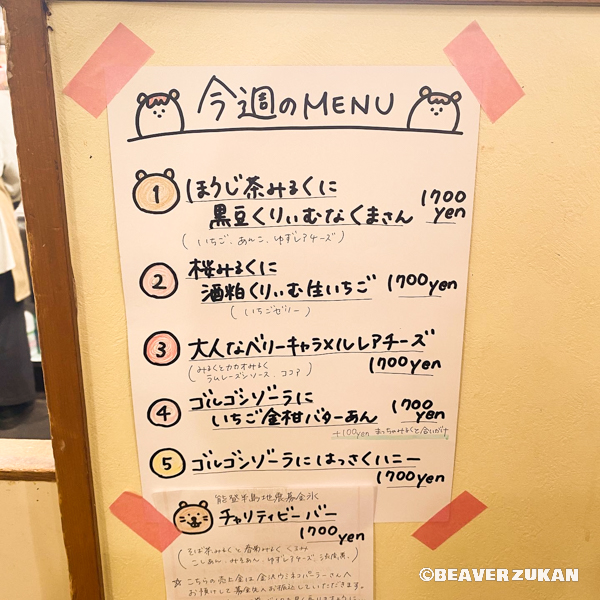 今週のMENU
1 ほうじ茶みるくに
黒豆くりぃむなくまさん 1700 yen
(いちご、あんこ、ゆずレアチーズ)
2 桜みるくに
酒粕くりぃむ生いちご 1700yen
(いちごゼリー)
3 大人なベリーキャラメルレアチーズ
(みるくとカカオみるく 1700yen
ラムレーズンソース、ココア)
4 ゴルゴンゾーラに
いちご金柑バターあん 1700 yen
+100yen まっちゃみるくと合いがけ
5 ゴルゴンゾーラにはっさくハニー
1700yen
能登半島地震募金な
チャリティビーバー
1700 yen
(そば茶みるくと
こしあん、みそあん、ゆずレアチーズ、
☆ こちらの売上金は金沢
お預けして募金先へお振込していただきます。
©BEAVER ZUKAN